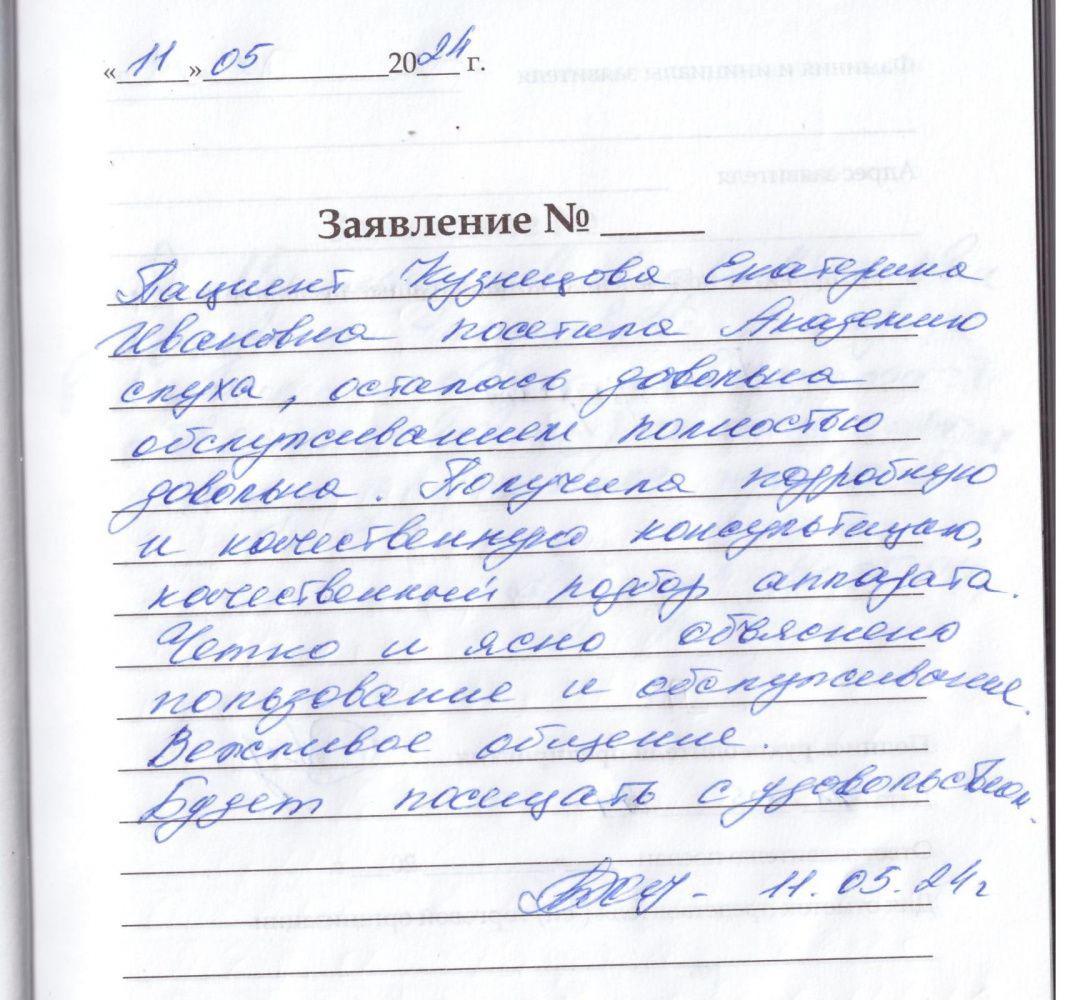 «11» 05 2024 г.
Заявление № ____
Пациент Кузнецова Екатерина
Ивановна посетила Академию
слуха, осталась довольна
обслуживанием полностью
довольна. Получила подробную
и качественную консультицаю,
качественный подбор аппарата.
Четко и ясно объяснено
пользование и обслуживание.
Вежливое общение.
Будет посещать с удовольствием.
11.05.24г